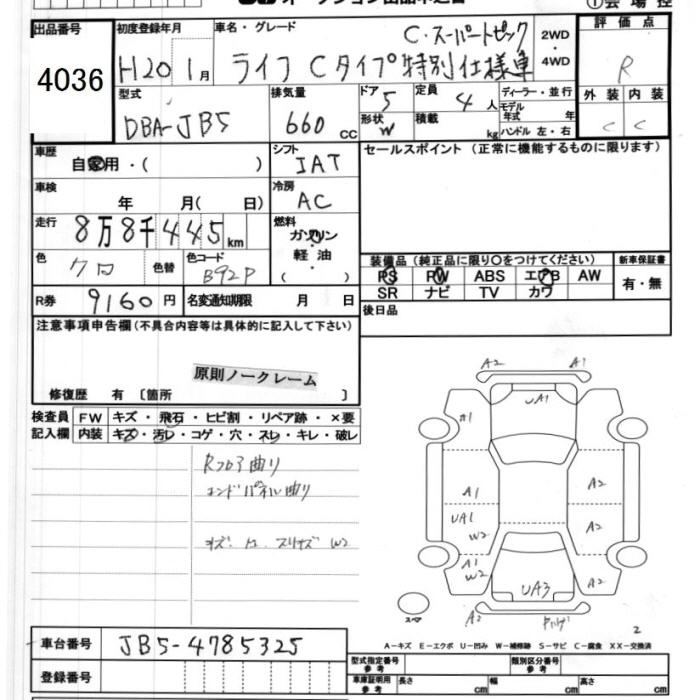 オークション出品申込書
①会場控
出品番号 初度登録年月 車名・グレード 評価点
4036 H20 1月 ライフ Cタイプ特別仕様車 C・スーパートピック 2WD・4WD R
型式 排気量 ドア 定員 ディーラー・並行 外装 内装
DBA-JB5 660cc 5 4人 モデル年式 年式 C C
形状 W 積載 kg ハンドル 左・右
車歴 自家用・( ) シフト IAT セールスポイント(正常に機能するものに限ります)
車検 年 月( 日) 冷房 AC
走行 8万8千445km 燃料 ガソリン
軽油
( )
色 クロ 色替 色コード B92P
装備品(純正品に限り○をつけてください) 新車保証書
PS PW ABS エアB AW 有・無
SR ナビ TV カワ
R券 9160円 名変通知期限 月 日 後日品
注意事項申告欄(不具合内容等は具体的に記入して下さい)
原則ノークレーム
修復歴 有〔箇所 〕
検査員 FW キズ・飛石・ヒビ割・リペア跡・×要
記入欄 内装 キズ・汚レ・コゲ・穴・スレ・キレ・破レ
Rフロア曲り
エンドパネル曲り
キズ・凹 スリキズ W2
A2 A1
UA1
A1
A1 A2
UA1
W2 A2
A1
W2 A2
UA3
スペア A2
2
A-キズ E-エクボ U-凹み W-補修跡 S-サビ C-腐食 XX-交換済
車台番号 JB5-4785325
型式指定番号 参考 類別区分番号 参考
登録番号 車庫証明用 参考 長さ cm 幅 cm 高さ cm